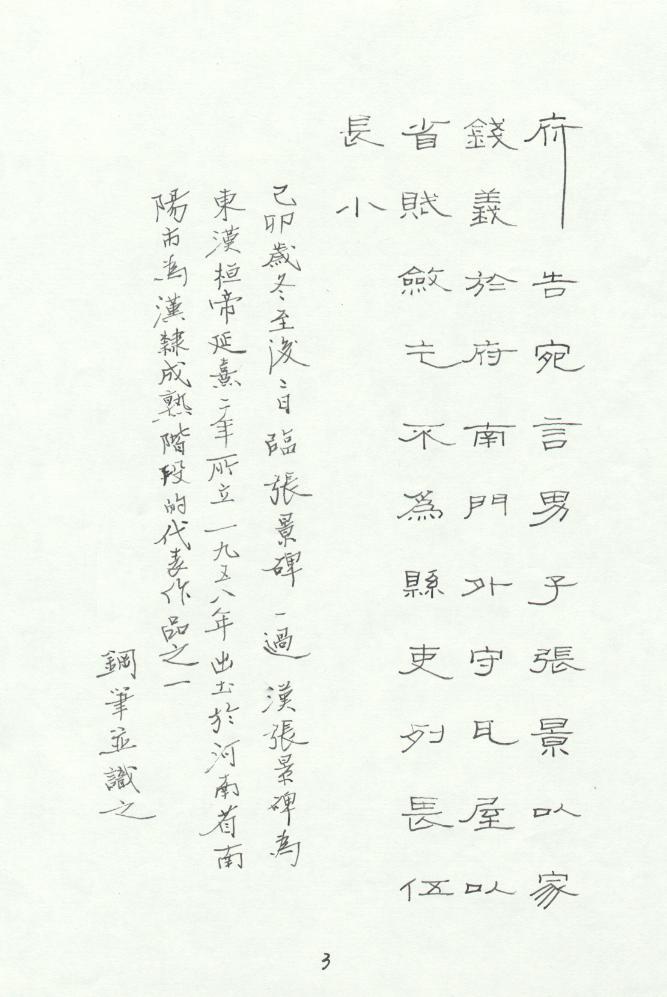 府告宛言男子張景以家
錢義於府南門外守瓦屋以
省賦斂乞不為縣吏列長伍
長小
己卯歲冬至後二日臨張景碑一過漢張景碑為
東漢桓帝延熹二年所立一九五八年出土於河南省南
陽市為漢隸成熟階段的代表作品之一
鋼筆並識之
3